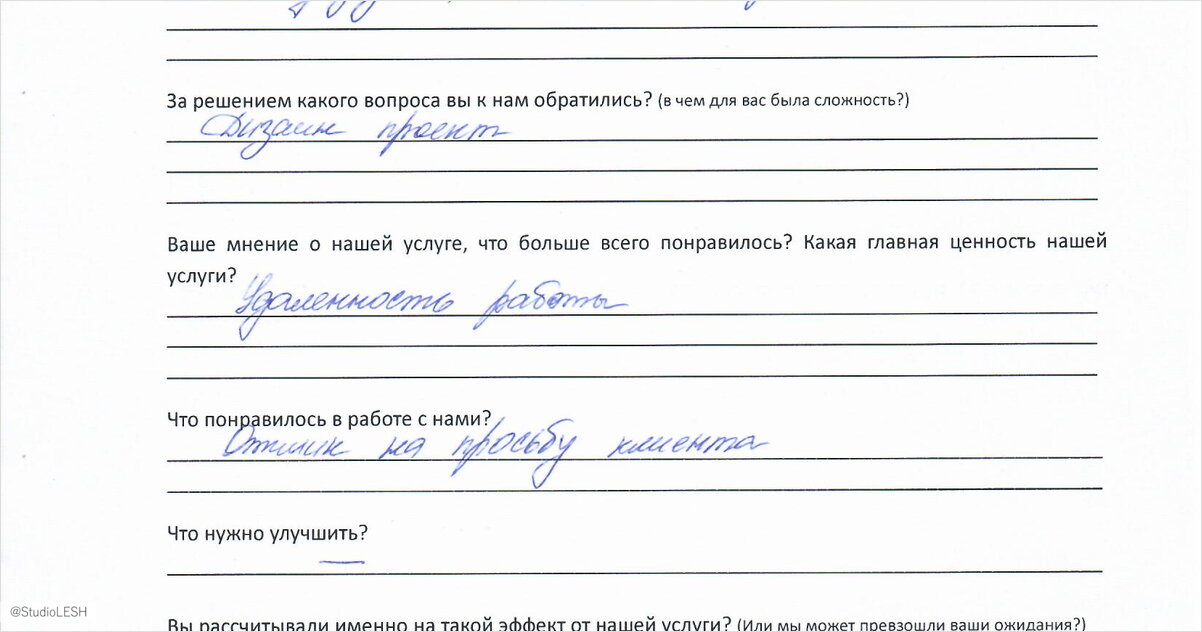 За решением какого вопроса вы к нам обратились? (в чем для вас была сложность?)
Дизайн проект
Ваше мнение о нашей услуге, что больше всего понравилось? Какая главная ценность нашей
услуги?
Удаленность работы
Что понравилось в работе с нами?
Отклик на просьбу клиента
Что нужно улучшить?
—
@StudioLESH
Вы рассчитывали именно на такой эффект от нашей услуги? (Или мы может превзошли ваши ожидания?)